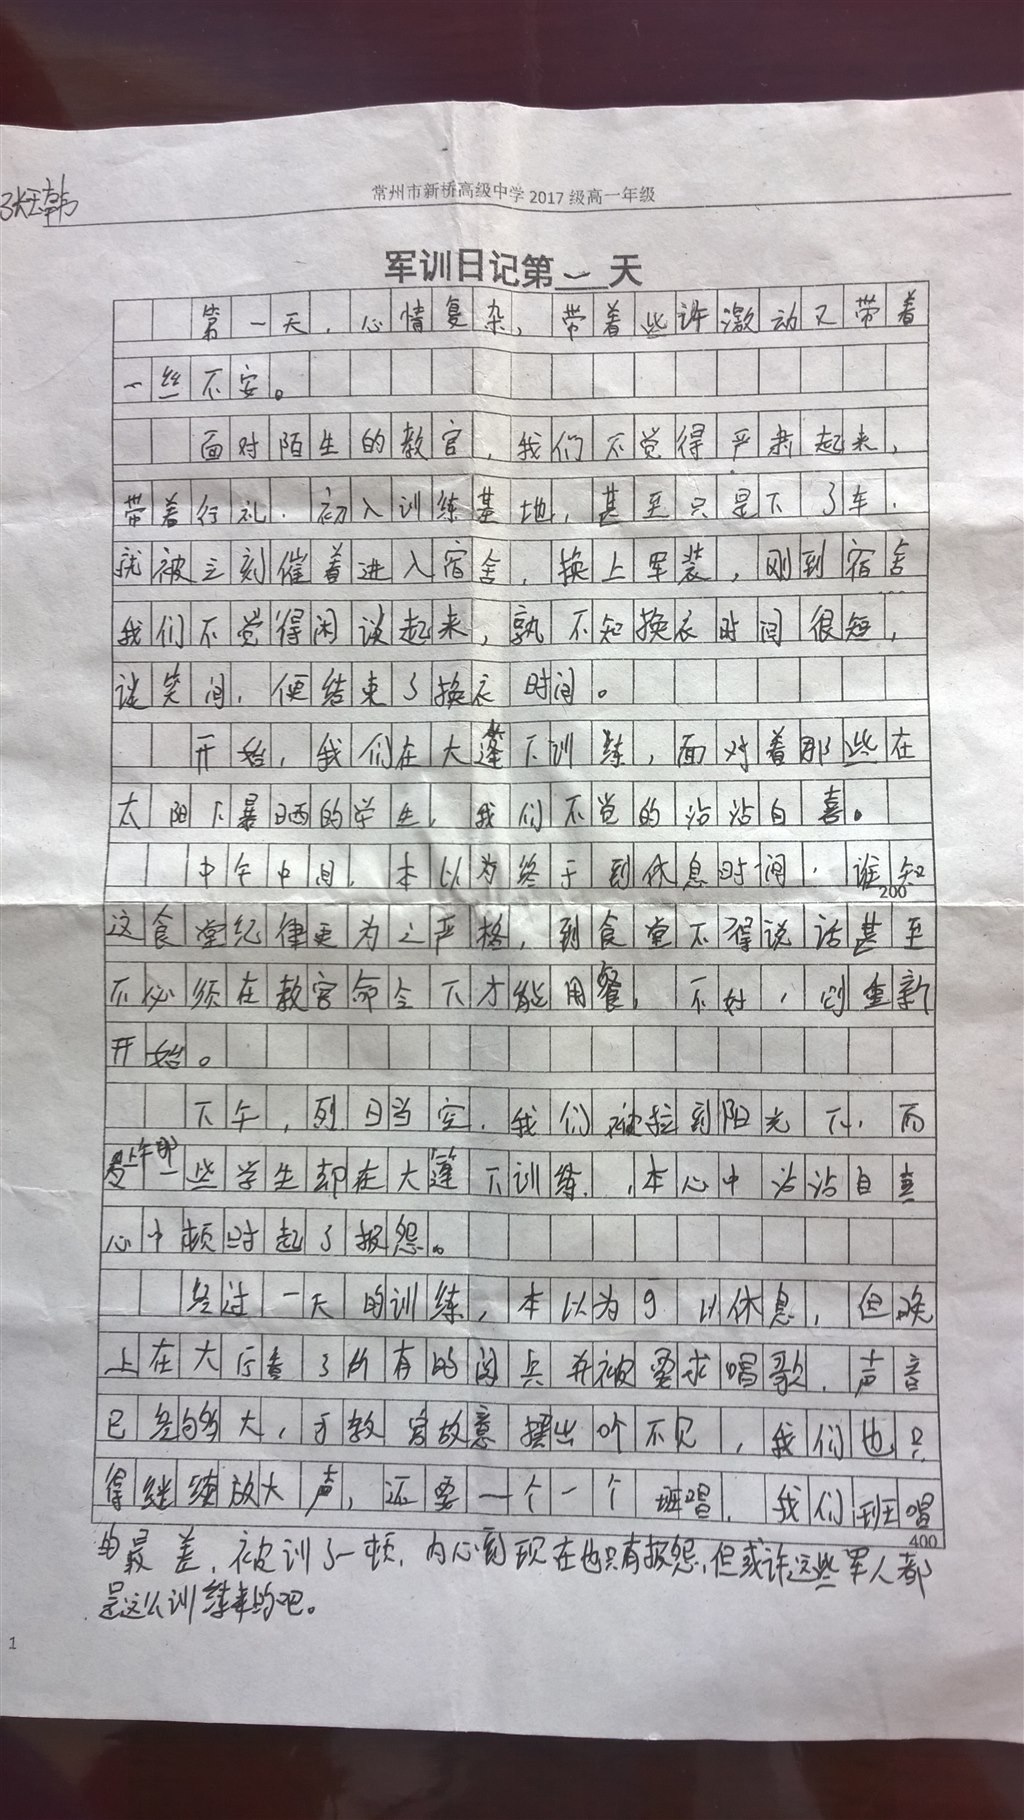 常州市新桥高级中学 2017 级高一年级
军训日记第一天
第一天，心情复杂，带着些许激动又带着
一丝不安。
面对陌生的教官，我们不觉得严肃起来，
带着行礼，初入训练基地，甚至只是下了车，
就被立刻催着进入宿舍，换上军装，刚到宿舍
我们不觉得闲谈起来，孰不知换衣时间很短，
谈笑间，便结束了换衣时间。
开始，我们在大篷下训练，面对着那些在
太阳下暴晒的学生，我们不觉的沾沾自喜。
中午中间，本以为终于到休息时间，谁知
200
这食堂纪律更为之严格，到食堂不得说话甚至
不必须在教官命令下才能用餐，不好，则重新
开始。
下午，烈日当空，我们被拉到阳光下，而
上午那一些学生却在大篷下训练，本心中沾沾自喜
心中顿时起了报怨。
经过一天的训练，本以为可以休息，但晚
上在大厅看了所有的阅兵并被要求唱歌，声音
已经够大，于教官故意摆出听不见，我们也只
得继续放大声，还要一个一个班唱，我们班唱
400
的最差，被训了一顿，内心到现在也只有报怨，但或许这些军人都
是这么训练来的吧。
1